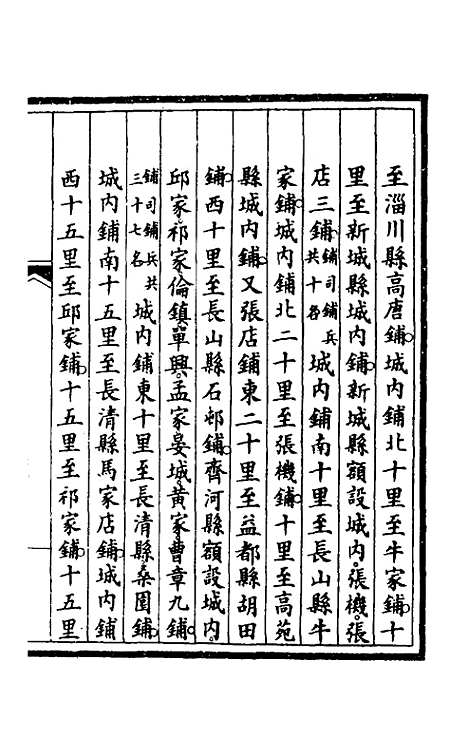 至淄川縣高唐鋪城内鋪北十里至牛家鋪十
里至新城縣城内鋪新城縣額設城内張機張
店三鋪鋪司鋪兵共十名城内鋪南十里至長山縣牛
家鋪城内鋪北二十里至張機鋪十里至高苑
縣城内鋪又張店鋪東二十里至益都縣胡田
鋪西十里至長山縣石邨鋪齊河縣額設城内
邱家祁家倫鎮單興孟家晏城黄家曹章九鋪
鋪司鋪兵共三十七名城内鋪東十里至長清縣桑園鋪
城内鋪南十五里至長清縣馬家店鋪城内鋪
西十五里至邱家鋪十五里至祁家鋪十五里